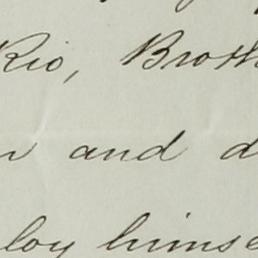 Rio, Broth
and d
loy himse